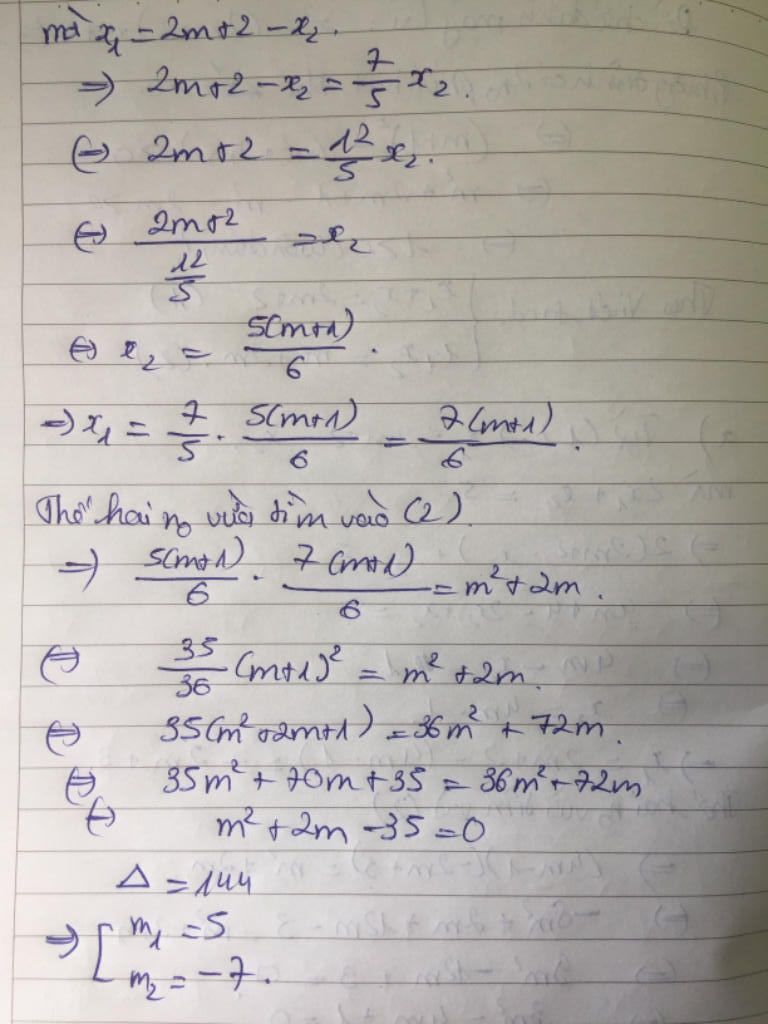 mà x₁ = 2m+2 - x₂.
⇒ 2m+2 - x₂ = 7/5 x₂.
⇔ 2m+2 = 12/5 x₂.
⇔ (2m+2)/(12/5) = x₂
⇔ x₂ = 5(m+1)/6 .
⇒ x₁ = 7/5 . 5(m+1)/6 = 7(m+1)/6 .
Thế hai n₀ vừa tìm vào (2).
⇒ 5(m+1)/6 . 7(m+1)/6 = m² + 2m .
⇔ 35/36 (m+1)² = m² + 2m.
⇔ 35(m²+2m+1) = 36m² + 72m.
⇔ 35m² + 70m + 35 = 36m² + 72m
⇔ m² + 2m - 35 = 0
Δ = 144
⇒ [ m₁ = 5
m₂ = -7 .